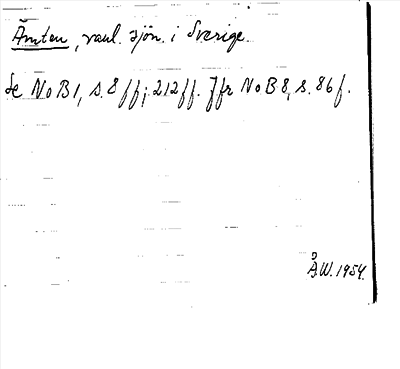 Ämten, vanl. sjön. i Sverige.
Se NoB 1, s. 8 ff; 212 ff. Jfr NoB 8, s. 86 f.
Å.W. 1954.